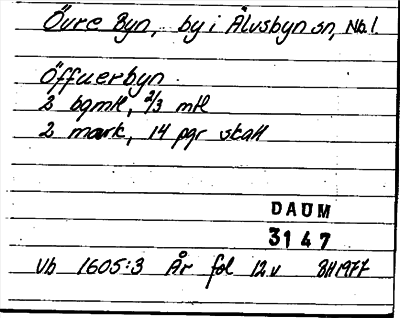 Övre Byn, by i Älvsbyn sn, Nb.l.
Öffuerbyn
2 bgmtl, 2/3 mtl
2 mark, 14 pgr skatt
DAUM
3147
Vb 1605:3 År fol 12v BH1977